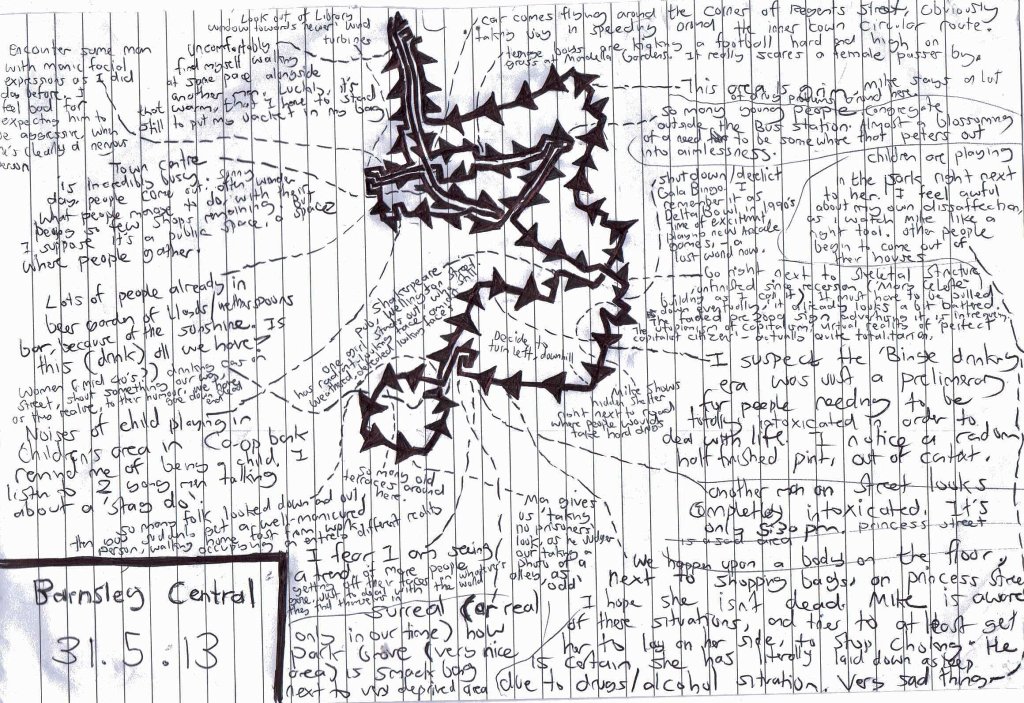 Look out of Library
window towards 'never' wind
turbines
Car comes flying around the corner of Regents Street, obviously
taking joy in speeding around the inner town circular route.
Encounter same man
with manic facial
expressions as I did
day before. I
feel bad for
expecting him to
be aggressive when
he's clearly a nervous
person
Uncomfortably
find myself walking
at same pace alongside
another man. Luckily, it's
that warm, that I have to stand
still to put my jacket in my bag
teenage boys are kicking a football hard and high on
grass at Mandella Gardens. It really scares a female passer by.
This area is grim. Mike says a lot
of drug problems around here
So many young people congregate
outside the Bus station. Almost a blossoming
of a need to be somewhere that peters out
into aimlessness.
Town centre
is incredibly busy. Sunny
day, people come out. Often wonder
what people manage to do with their
days, so few shops remaining. But
I suppose it's a public space, a space
where people gather
shut down/derelict
Gala Bingo. I
remember it as
Delta Bowl in 1990's
Time of excitment
playing new Arcade
games, - a
lost world now.
Children are playing
in the park right next
to her. I feel awful
about my own dissaffection,
as I watch Mike like a
right tool. Other people
begin to come out of
their houses
Lots of people already in
beer garden of Lloyds/wetherspoons
bar because of the sunshine. Is
this (drink) all we have?
Go right next to skeletal structure
unfinished since recession (Mark Close
building as I call it) It must have to be pulled
down eventually; it already looks a bit battered.
The faded pre 2008 sign advertising it is intriguing.
The utopianism of capitalism; virtual reality of 'perfect
capitalist citizen' - actually quite totalitarian.
Decide to
turn left, downhill
Women (mid 40's?) drinking can on
street, shout something our way
as we realise, to their humour, we are down
Noises of child playing in
children's area in Co-op bank
remind me of being a child. I
listen to 2 young men talking
about a 'stag do'.
Mike shows
hidden shelter
right next to road
where people would
take hard drugs
I suspect the 'Binge drinking
era' was just a preliminary
for people needing to be
totally intoxicated in order to
deal with life. I notice a random
half finished pint, out of context.
So many old
terraces around
here.
So many folk looked down and out
then we suddenly get a well-manicured
person, walking home fast from work
occupying an entirely different reality
Man gives
us 'taking
no prisoners'
look, as he judges
our taking a
photo of a
alley as
odd'
another man on street looks
completely intoxicated. It's
only 5:30 pm. Princess street
is a sad area
Barnsley Central
31.5.13
I fear I am seeing
a trend of more people
getting off their faces on whatever's
gone just to deal with the world
they find themselves in
Surreal (or real
only in our time) how
park Grove (very nice
area) is smack bang
next to very deprived area
We happen upon a body on the floor,
next to shopping bags, on princess Street.
I hope she isn't dead. Mike is aware
of these situations, and tries to at least get
her to lay on her side, to stop choking. He
is certain she has literally laid down asleep
due to drugs/alcohol situation. Very sad thing